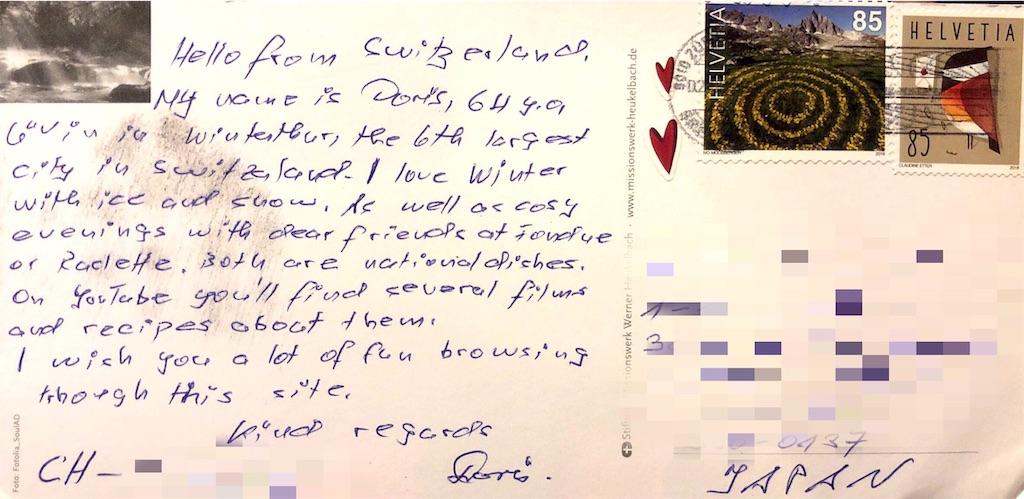 Hello from Switzerland.
My name is Doris, 64 y.a
in Winterthur, the 6th largest
city in Switzerland. I love Winter
with ice and snow. As well as cosy
evenings with dear friends at Fondue
or Raclette. Both are national dishes.
On YouTube you'll find several films
and recipes about them.
I wish you a lot of fun browsing
though this site.
Kind regards
CH-
Doris.
Foto: Fotolia_SoulAD
www.missionswerk-heukelbach.de
missionswerk Werner
HELVETIA
85
HELVETIA
85
CLAUDINE ETTER
1-
3
0137
JAPAN